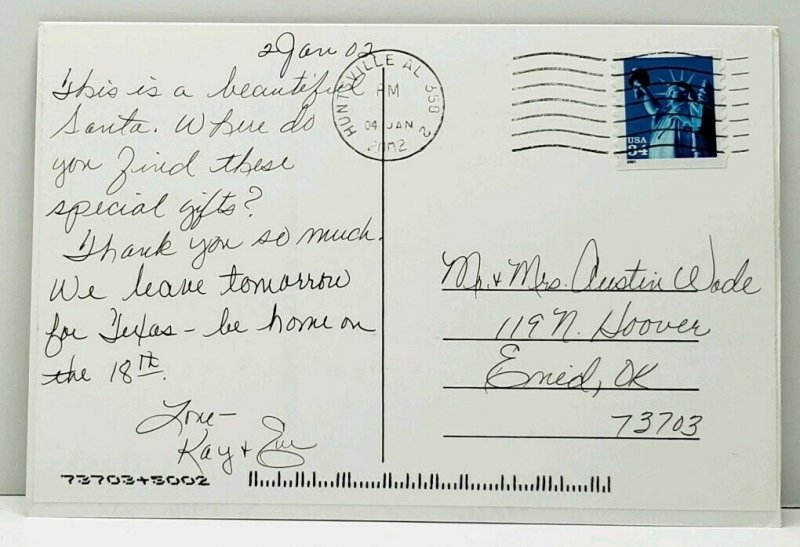 2 Jan 02
This is a beautiful
Santa. Where do
you find these
special gifts?
Thank you so much.
We leave tomorrow
for Texas – be home on
the 18th.
Love –
Kay +
HUNTSVILLE AL 358 2
PM
04 JAN
2002
USA
34
2001
Mr. & Mrs. Austin Wade
119 N. Hoover
Enid, OK
73703
73703+5002